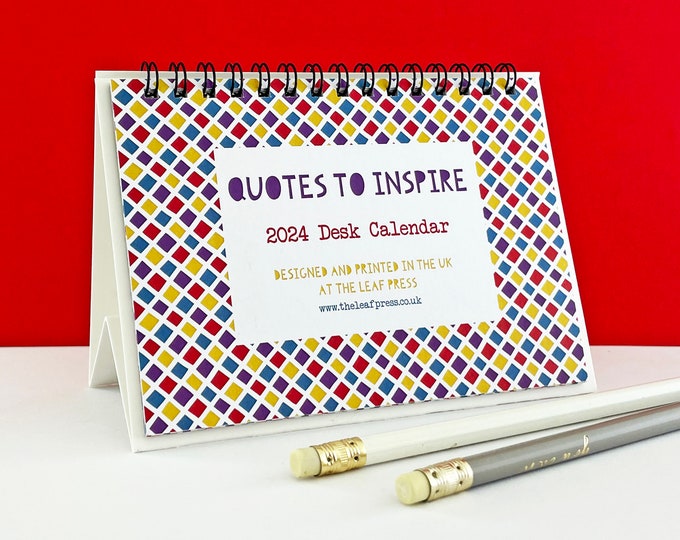 QUOTES TO INSPIRE
2024 Desk Calendar
DESIGNED AND PRINTED IN THE UK
AT THE LEAF PRESS
www.theleafpress.co.uk